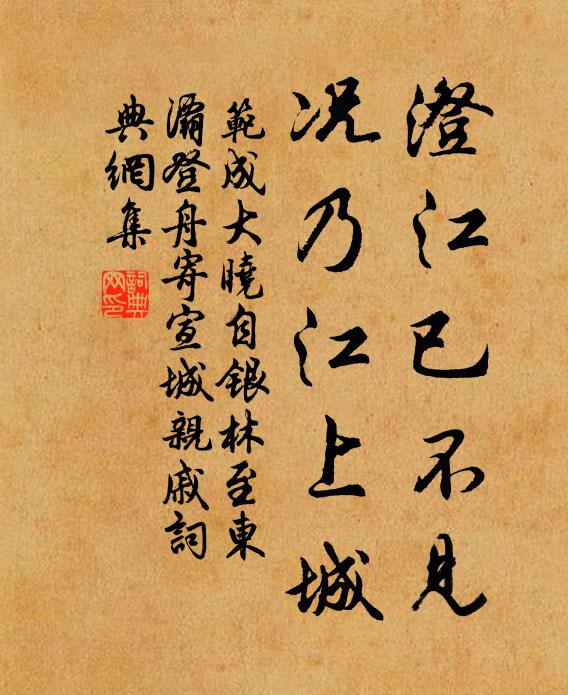 澄江已不見
況乃江上城
範成大曉自銀林至東
灞登舟寄宣城親戚詞
典網集
詞典
网印